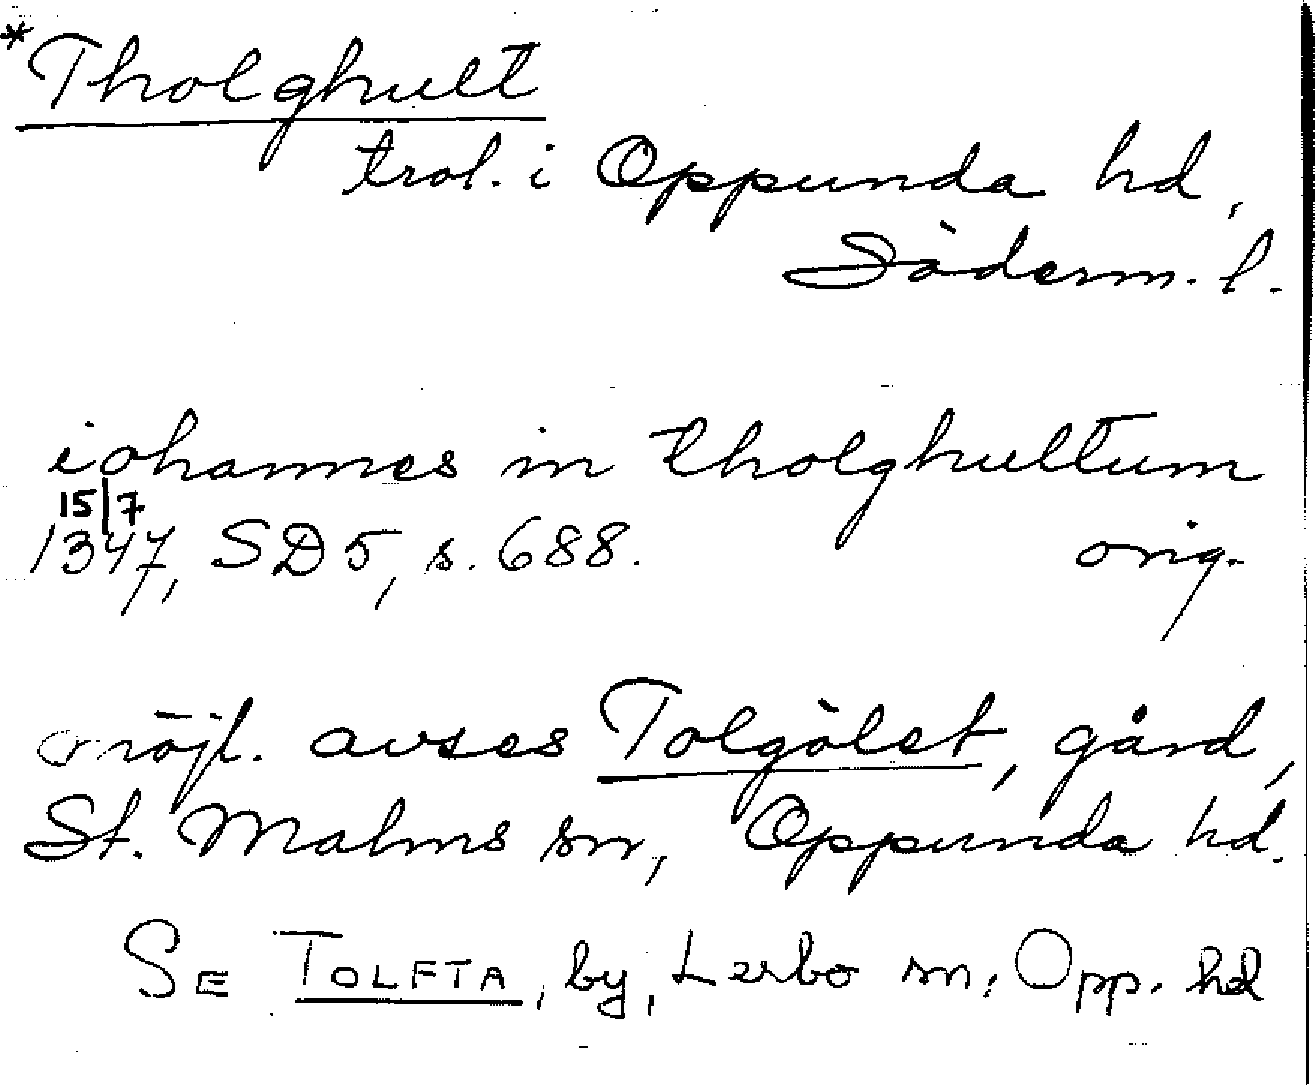 *Tholghult
trol. i Oppunda hd,
Söderm. l.
iohannes in tholghultum
15/7
1347, SD 5, s. 688. orig.
möjl. avses Tolgölet, gård,
St. Malms sn, Oppunda hd.
SE TOLFTA, by, Lerbo sn, Opp. hd